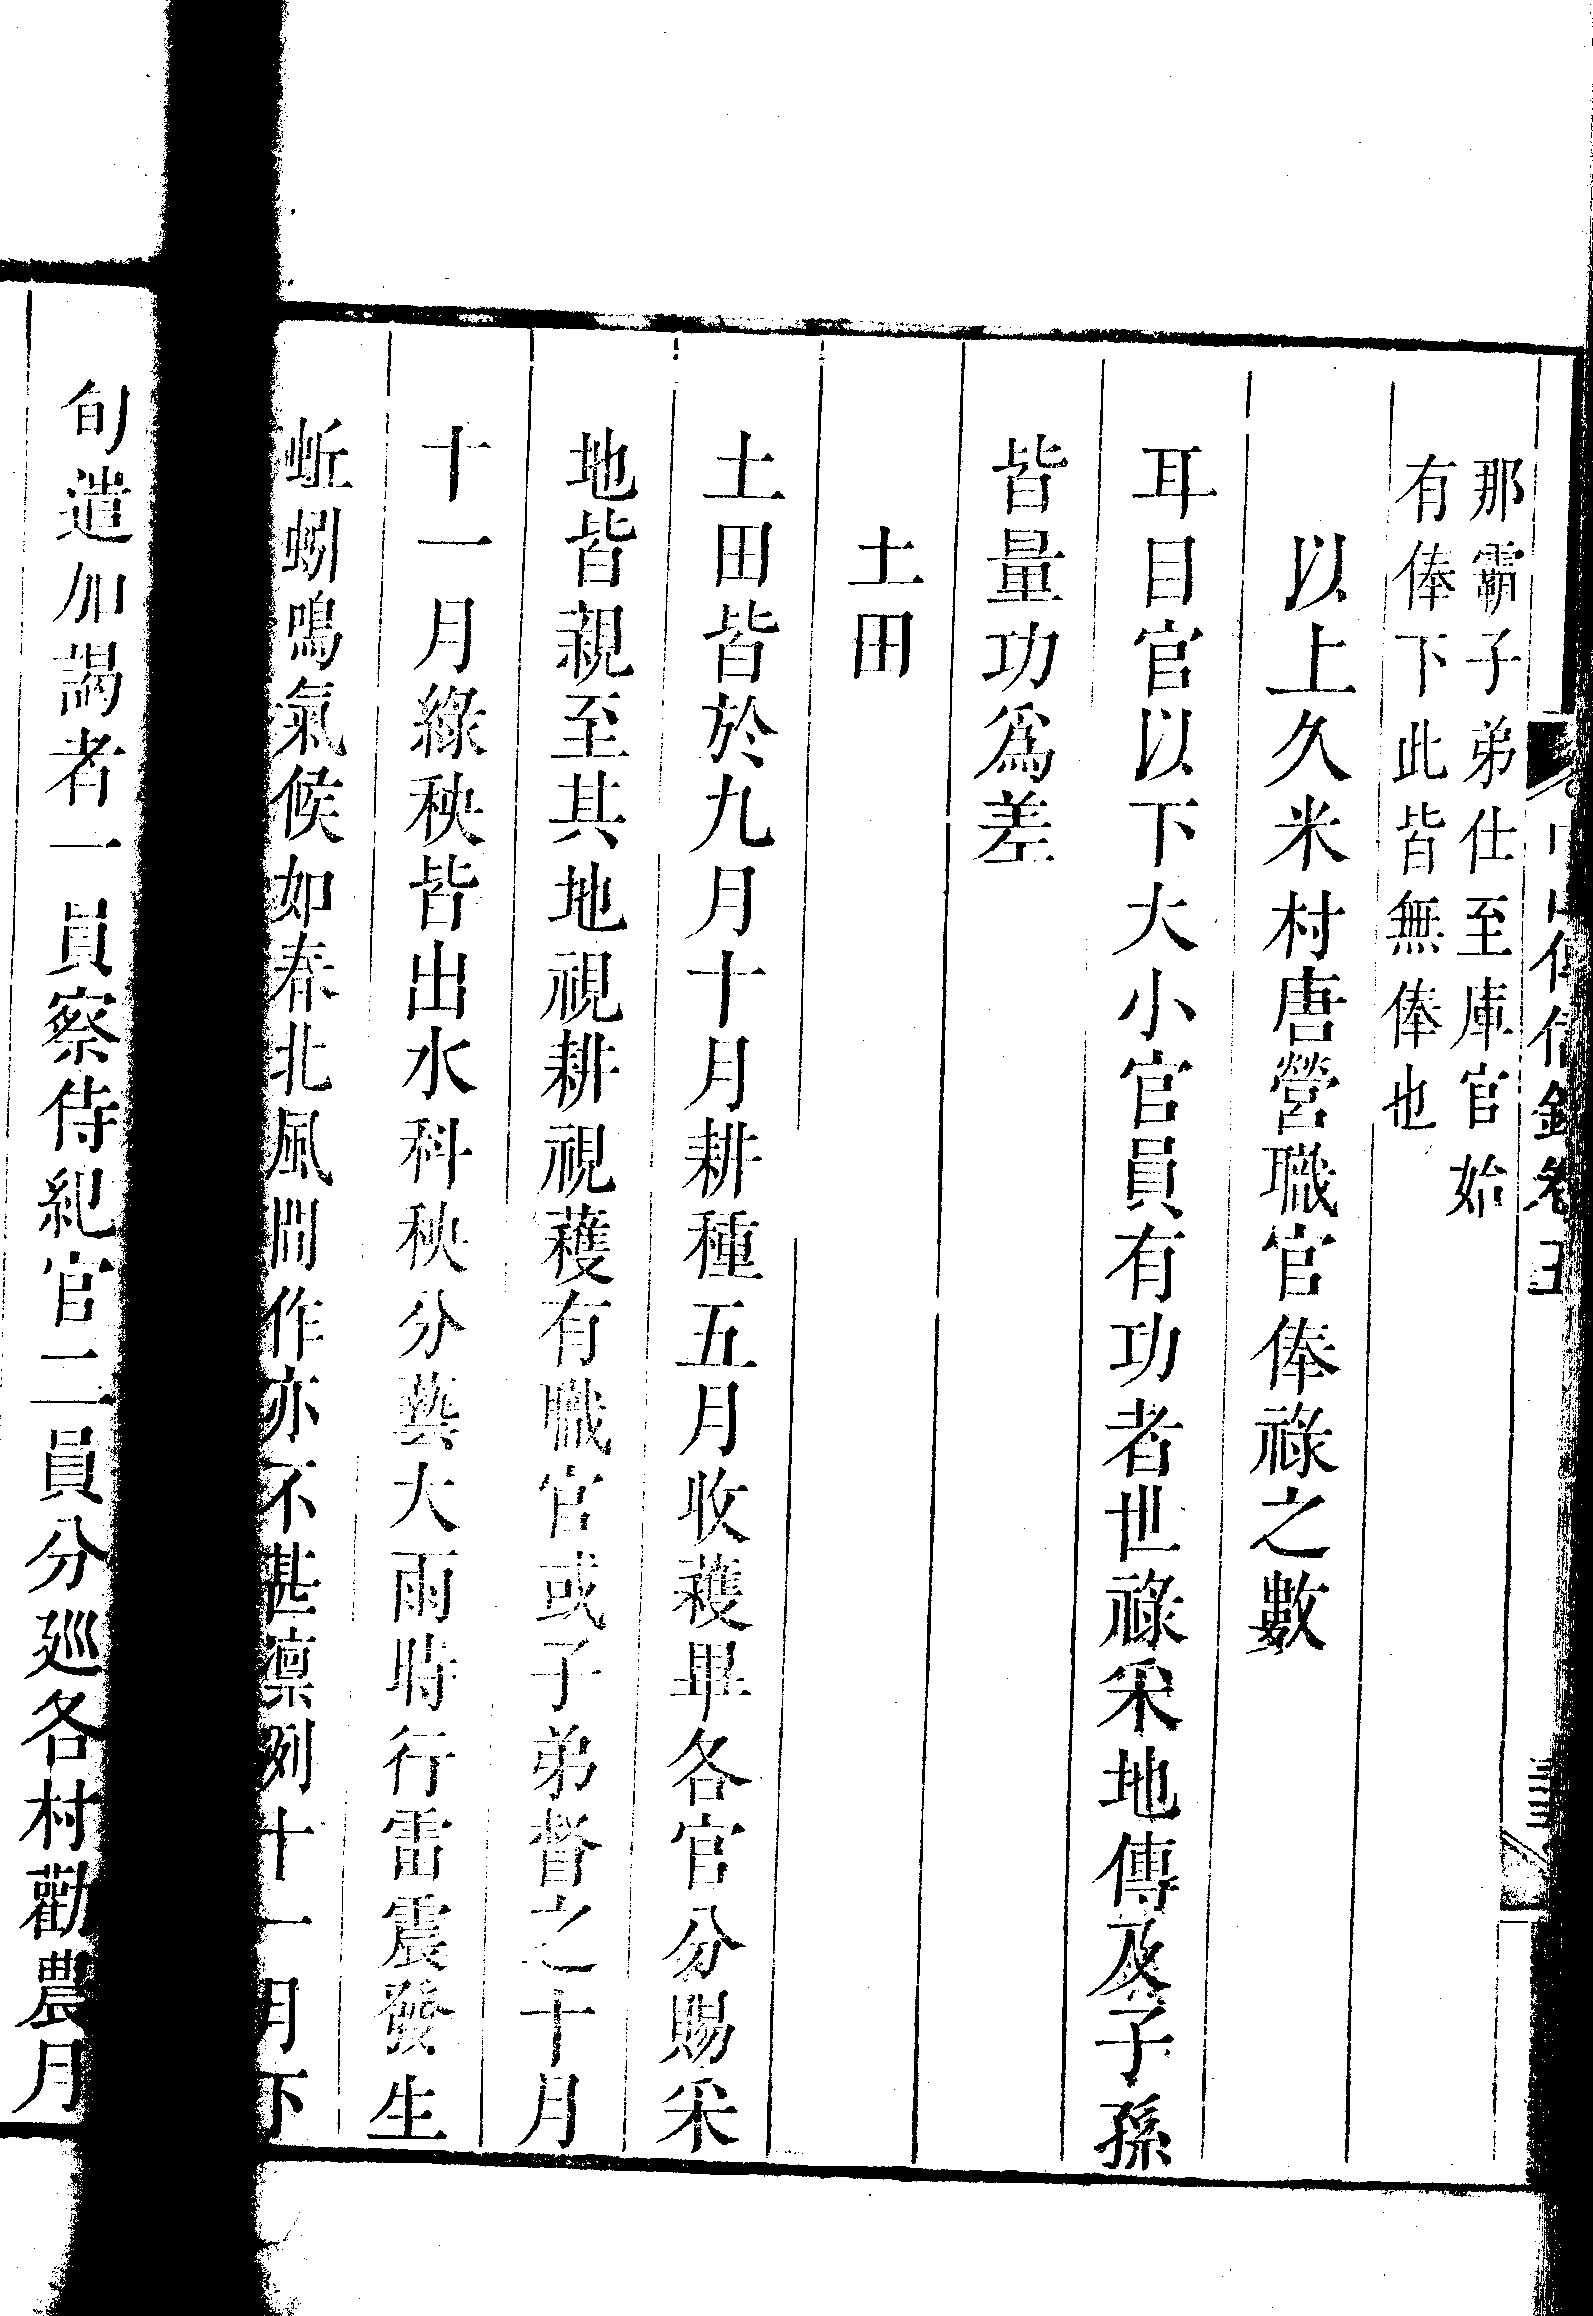 中山傳信錄卷五
那霸子弟仕至庫官始
有俸下此皆無俸也
以上久米村唐營職官俸祿之數
耳目官以下大小官員有功者世祿采地傳及子孫
皆量功爲差
土田
土田皆於九月十月耕種五月收穫畢各官分賜采
地皆親至其地視耕視穫有職官或子弟督之十月
十一月綠秧皆出水科秧分蓺大雨時行雷震發生
蚯蚓鳴氣候如春北風間作亦不甚凛冽十一月下
旬遣加謁者一員察侍紀官二員分廵各村勸農月